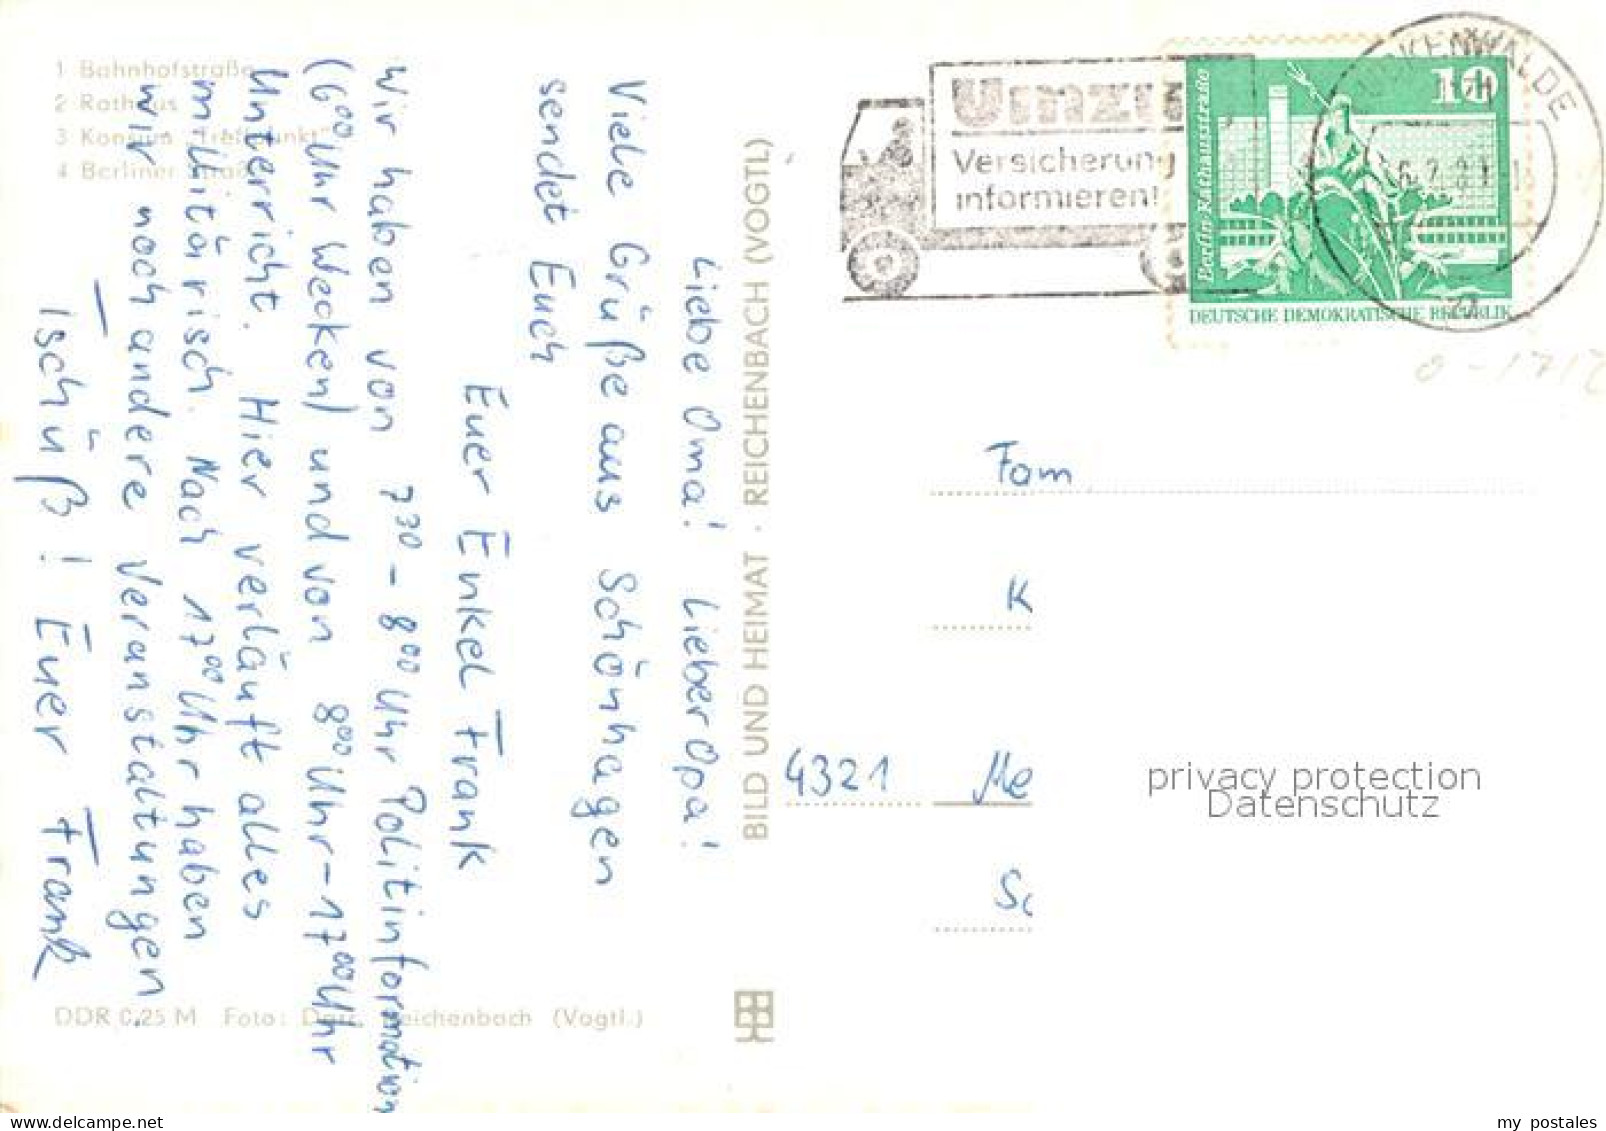 1 Bahnhofstraße
2 Rathaus
3 Konsum "Treffpunkt"
4 Berliner Straße
Liebe Oma! Lieber Opa!
Viele Grüße aus Schönhagen
sendet Euch
Euer Enkel Frank
Wir haben von 7³⁰ - 8⁰⁰ Uhr Politinformation
(6⁰⁰ Uhr Wecken) und von 8⁰⁰ Uhr - 17⁰⁰ Uhr
Unterricht. Hier verläuft alles
militärisch. Nach 17⁰⁰ Uhr haben
wir noch andere Veranstaltungen.
Tschüß! Euer Frank
DDR 0,25 M Foto: Darr, Reichenbach (Vogtl.)
BILD UND HEIMAT · REICHENBACH (VOGTL)
Umzug
Versicherung
informieren!
Berlin Rathausstraße
10
DEUTSCHE DEMOKRATISCHE REPUBLIK
LUCKENWALDE
Fam
K
4321 Me
Sc
privacy protection
Datenschutz
my postales
www.delcampe.net